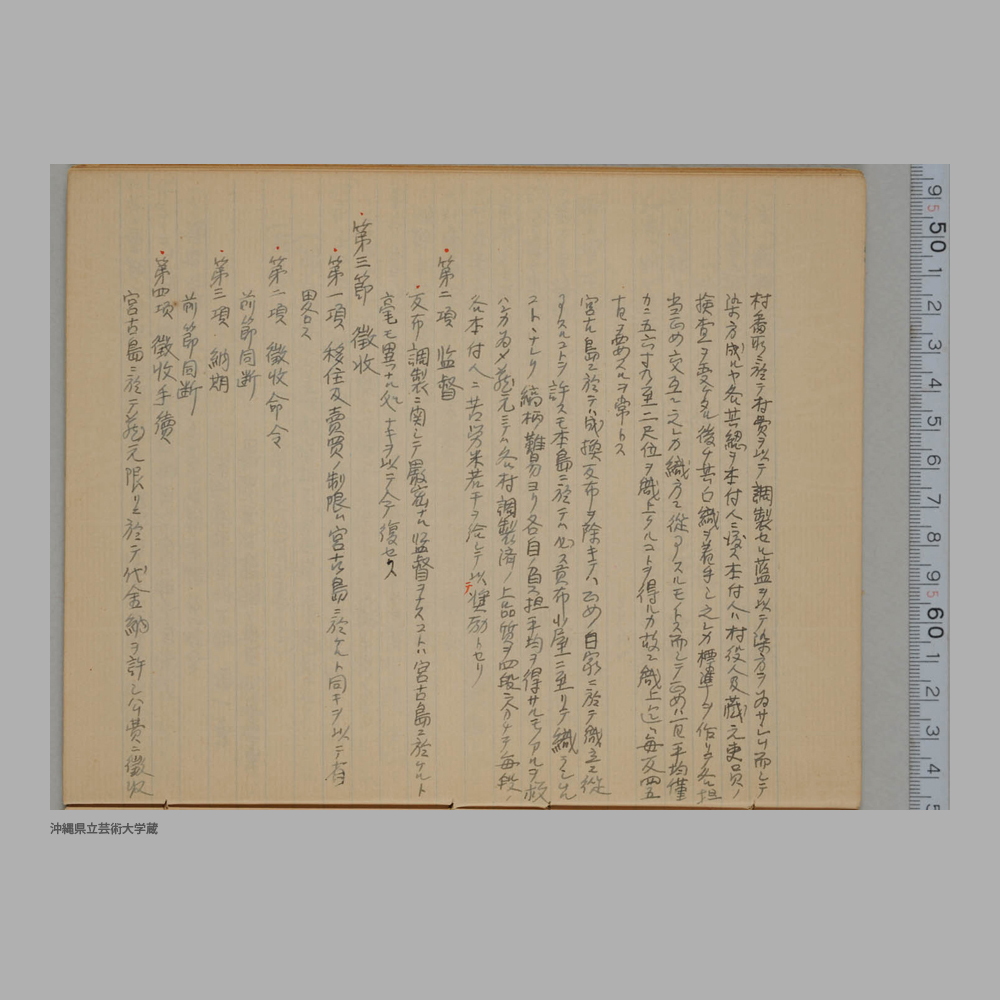 村番所ニ於テ村費ヲ以テ調製セル藍ヲ以テ染方ヲ為サシム而シテ
染方成ルヤ各其総ヲ本村人ニ渡ス本村人ハ村役人及蔵元吏員ノ
検査ヲ受ケタル後チ其白織ヲ着手シ之レカ標準ヲ作リ各担
当女 交互ニ之レカ織方ニ従事スルモノトス而シテ女 一日平均僅
カニ五六寸乃至二尺位ヲ織上クルコトヲ得ルカ故ニ織上迄ハ毎反四五
十日ヲ要スルヲ常トス
宮古島ニ於テハ 換反布ヲ除キテハ 女 自家ニ於テ織立ニ従
事スルコトヲ許スモ本島ニ於テハ必ス貢布小屋ニ至リテ織ラシムル
コトトナレリ縞柄難易ヨリ各自ノ負担平均ヲ得サルモノアルヲ以
ハンカ為メ蔵元ニテハ各村調製済ノ上品質ヲ四段ニ分チテ毎段ノ
各本村人ニ苦労米若干ヲ給シテ以テ奨励トセリ
・第二項 監督
・反布調製ニ関シテ厳密ナル監督ヲナスコトハ宮古島ニ於ケルト
毫モ異ナル処ナキヲ以テ今復セス
・第三節 徴收
・第一項 移住及賣買ノ制限ハ宮古島ニ於ケルト同キヲ以テ省
畧ス
・第二項 徴收命令
前節同断
・第三項 納期
前節同断
・第四項 徴收手續
宮古島ニ於テ蔵元限リニ於テ代金納ヲ許シ公費ニ徴收
9 50 1 2 3 4 5 6 7 8 9 60 1 2 3 4 5
沖縄県立芸術大学蔵